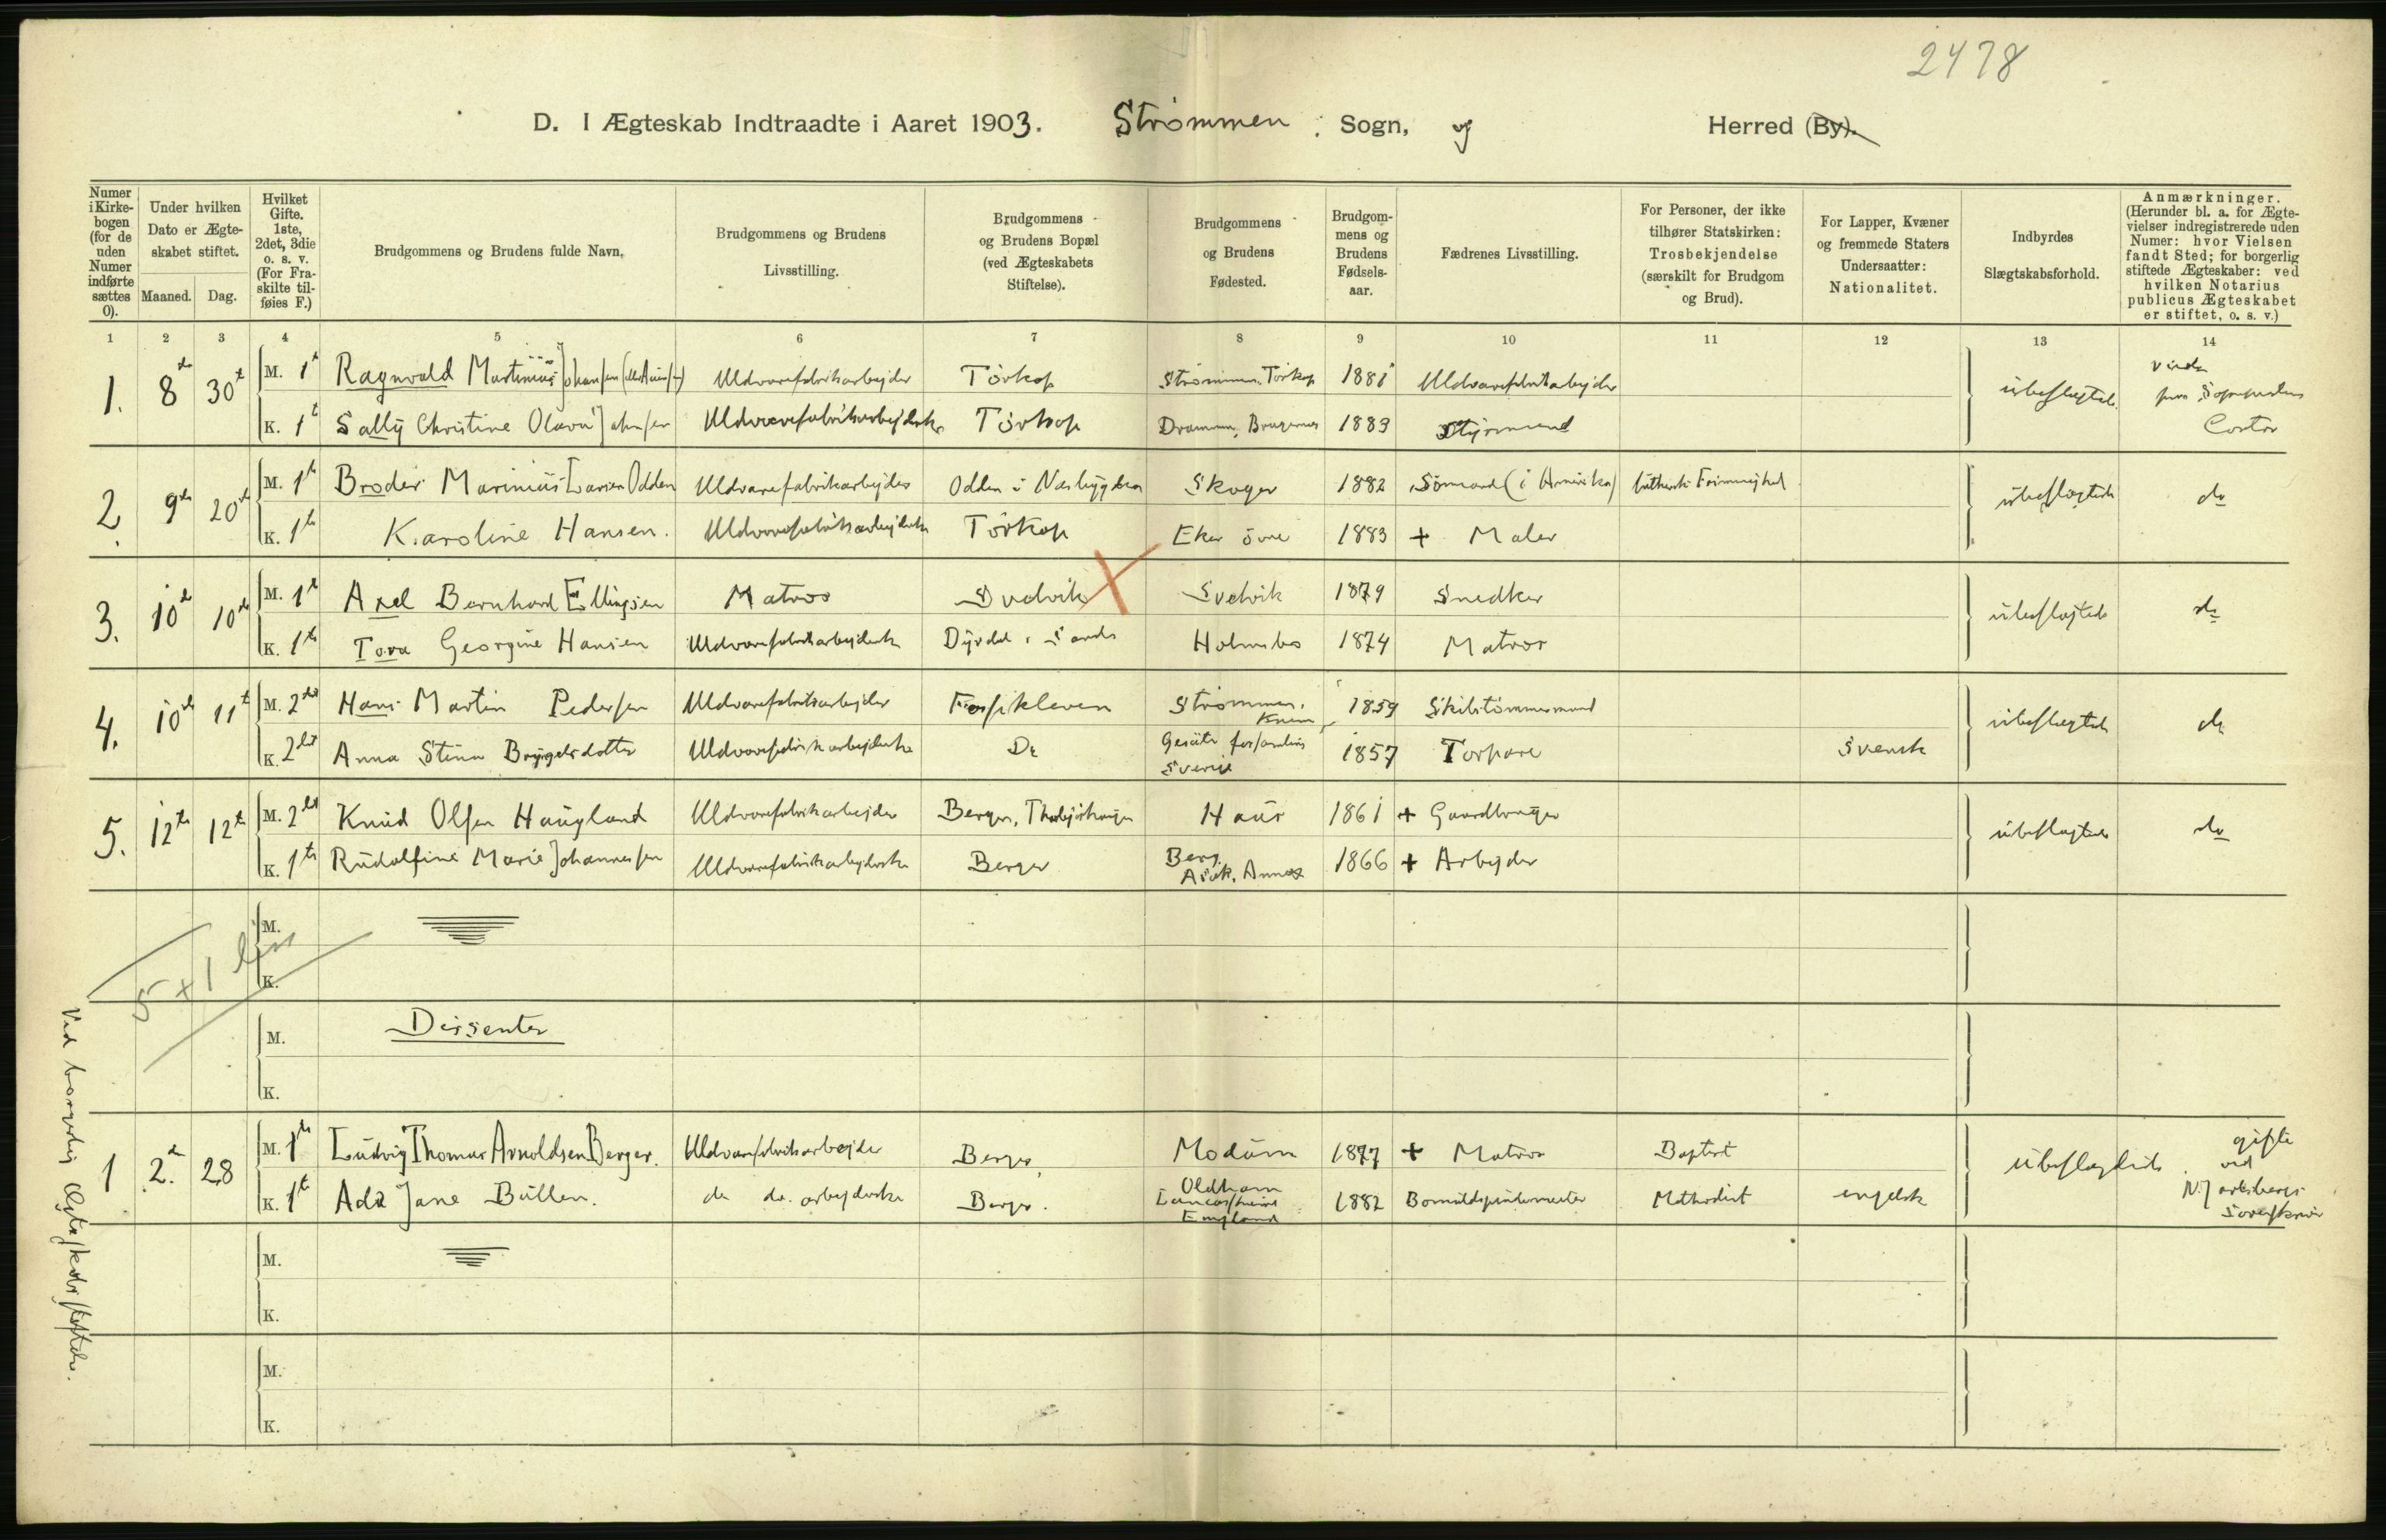 2478
D. I Ægteskab Indtraadte i Aaret 1903. Strömmen Sogn, og Herred (By).
Numer i Kirkebogen (for de uden Numer indførte sættes 0).
Under hvilken Dato er Ægteskabet stiftet.
Maaned. Dag.
Hvilket Gifte. 1ste, 2det, 3die o. s. v. (For Fraskilte tilføies F.)
Brudgommens og Brudens fulde Navn.
Brudgommens og Brudens Livsstilling.
Brudgommens og Brudens Bopæl (ved Ægteskabets Stiftelse).
Brudgommens og Brudens Fødested.
Brudgommens og Brudens Fødselsaar.
Fædrenes Livsstilling.
For Personer, der ikke tilhører Statskirken: Trosbekjendelse (særskilt for Brudgom og Brud).
For Lapper, Kvæner og fremmede Staters Undersaatter: Nationalitet.
Indbyrdes Slægtskabsforhold.
Anmærkninger. (Herunder bl. a. for Ægtevielser indregistrerede uden Numer: hvor Vielsen fandt Sted; for borgerlig stiftede Ægteskaber: ved hvilken Notarius publicus Ægteskabet er stiftet, o. s. v.)
1 2 3 4 5 6 7 8 9 10 11 12 13 14
1. 8de 30te M. 1te Ragnvald Martinius Johansen Uldvarefabrikarbejder Törkop Strömmen, Törkop 1881 Uldvarefabrikarbejder ubeslægtede
K. 1te Sally Christine Olava Johansen Uldvarefabrikarbejderske Törkop Drammen, Bragernes 1883 Styrmand
2. 9de 20de M. 1te Broder Marinius Larsen Odden Uldvarefabrikarbejder Odden i Nesbygden Skoger 1882 Sömand (i Amerika) luthersk Frimenighed ubeslægtede do
K. 1te Karoline Hansen. Uldvarefabrikarbejderske Törkop Eker övre 1883 + Maler
3. 10de 10de M. 1te Axel Bernhard Ellingsen Matros Svelvik Svelvik 1879 Snedker ubeslægtede do
K. 1te Tora Georgine Hansen Uldvarefabrikarbejderske Dyrdal i Sande Holmsbo 1874 Matros
4. 10de 11te M. 2det Hans Martin Pedersen Uldvarefabrikarbejder Fossekleven Strömmen, Knem 1859 Skibstömmermand ubeslægtede do
K. 2det Anna Stina Bryngelsdotter Uldvarefabrikarbejderske Do Gesäter forsamling Sverige 1857 Torpare Svensk
5. 12te 12te M. 2det Knud Olsen Haugland Uldvarefabrikarbejder Berger, Haus 1861 + Gaardbruger ubeslægtede do
K. 1te Rudolfine Marie Johannesen Uldvarefabrikarbejderske Berger Berg, Asak, Annex 1866 + Arbejder
M.
K.
5 + 1
M. Dissenter
K.
1 2. 28 M. 1te Ludvig Thomas Arnoldsen Berger. Uldvarefabrikarbejder Berger, Modum 1877 + Matros Baptist ubeslægtede gifte ved N. Jarlsbergs Sorenskriver
K. 1te Ada Jane Bullen. do do. arbejderske Berger. Oldham Lancashire England 1882 Bomuldspindemester Methodist engelsk
M.
K.
M.
K.
Ved borgerlig Ægteskabsstiftelse.